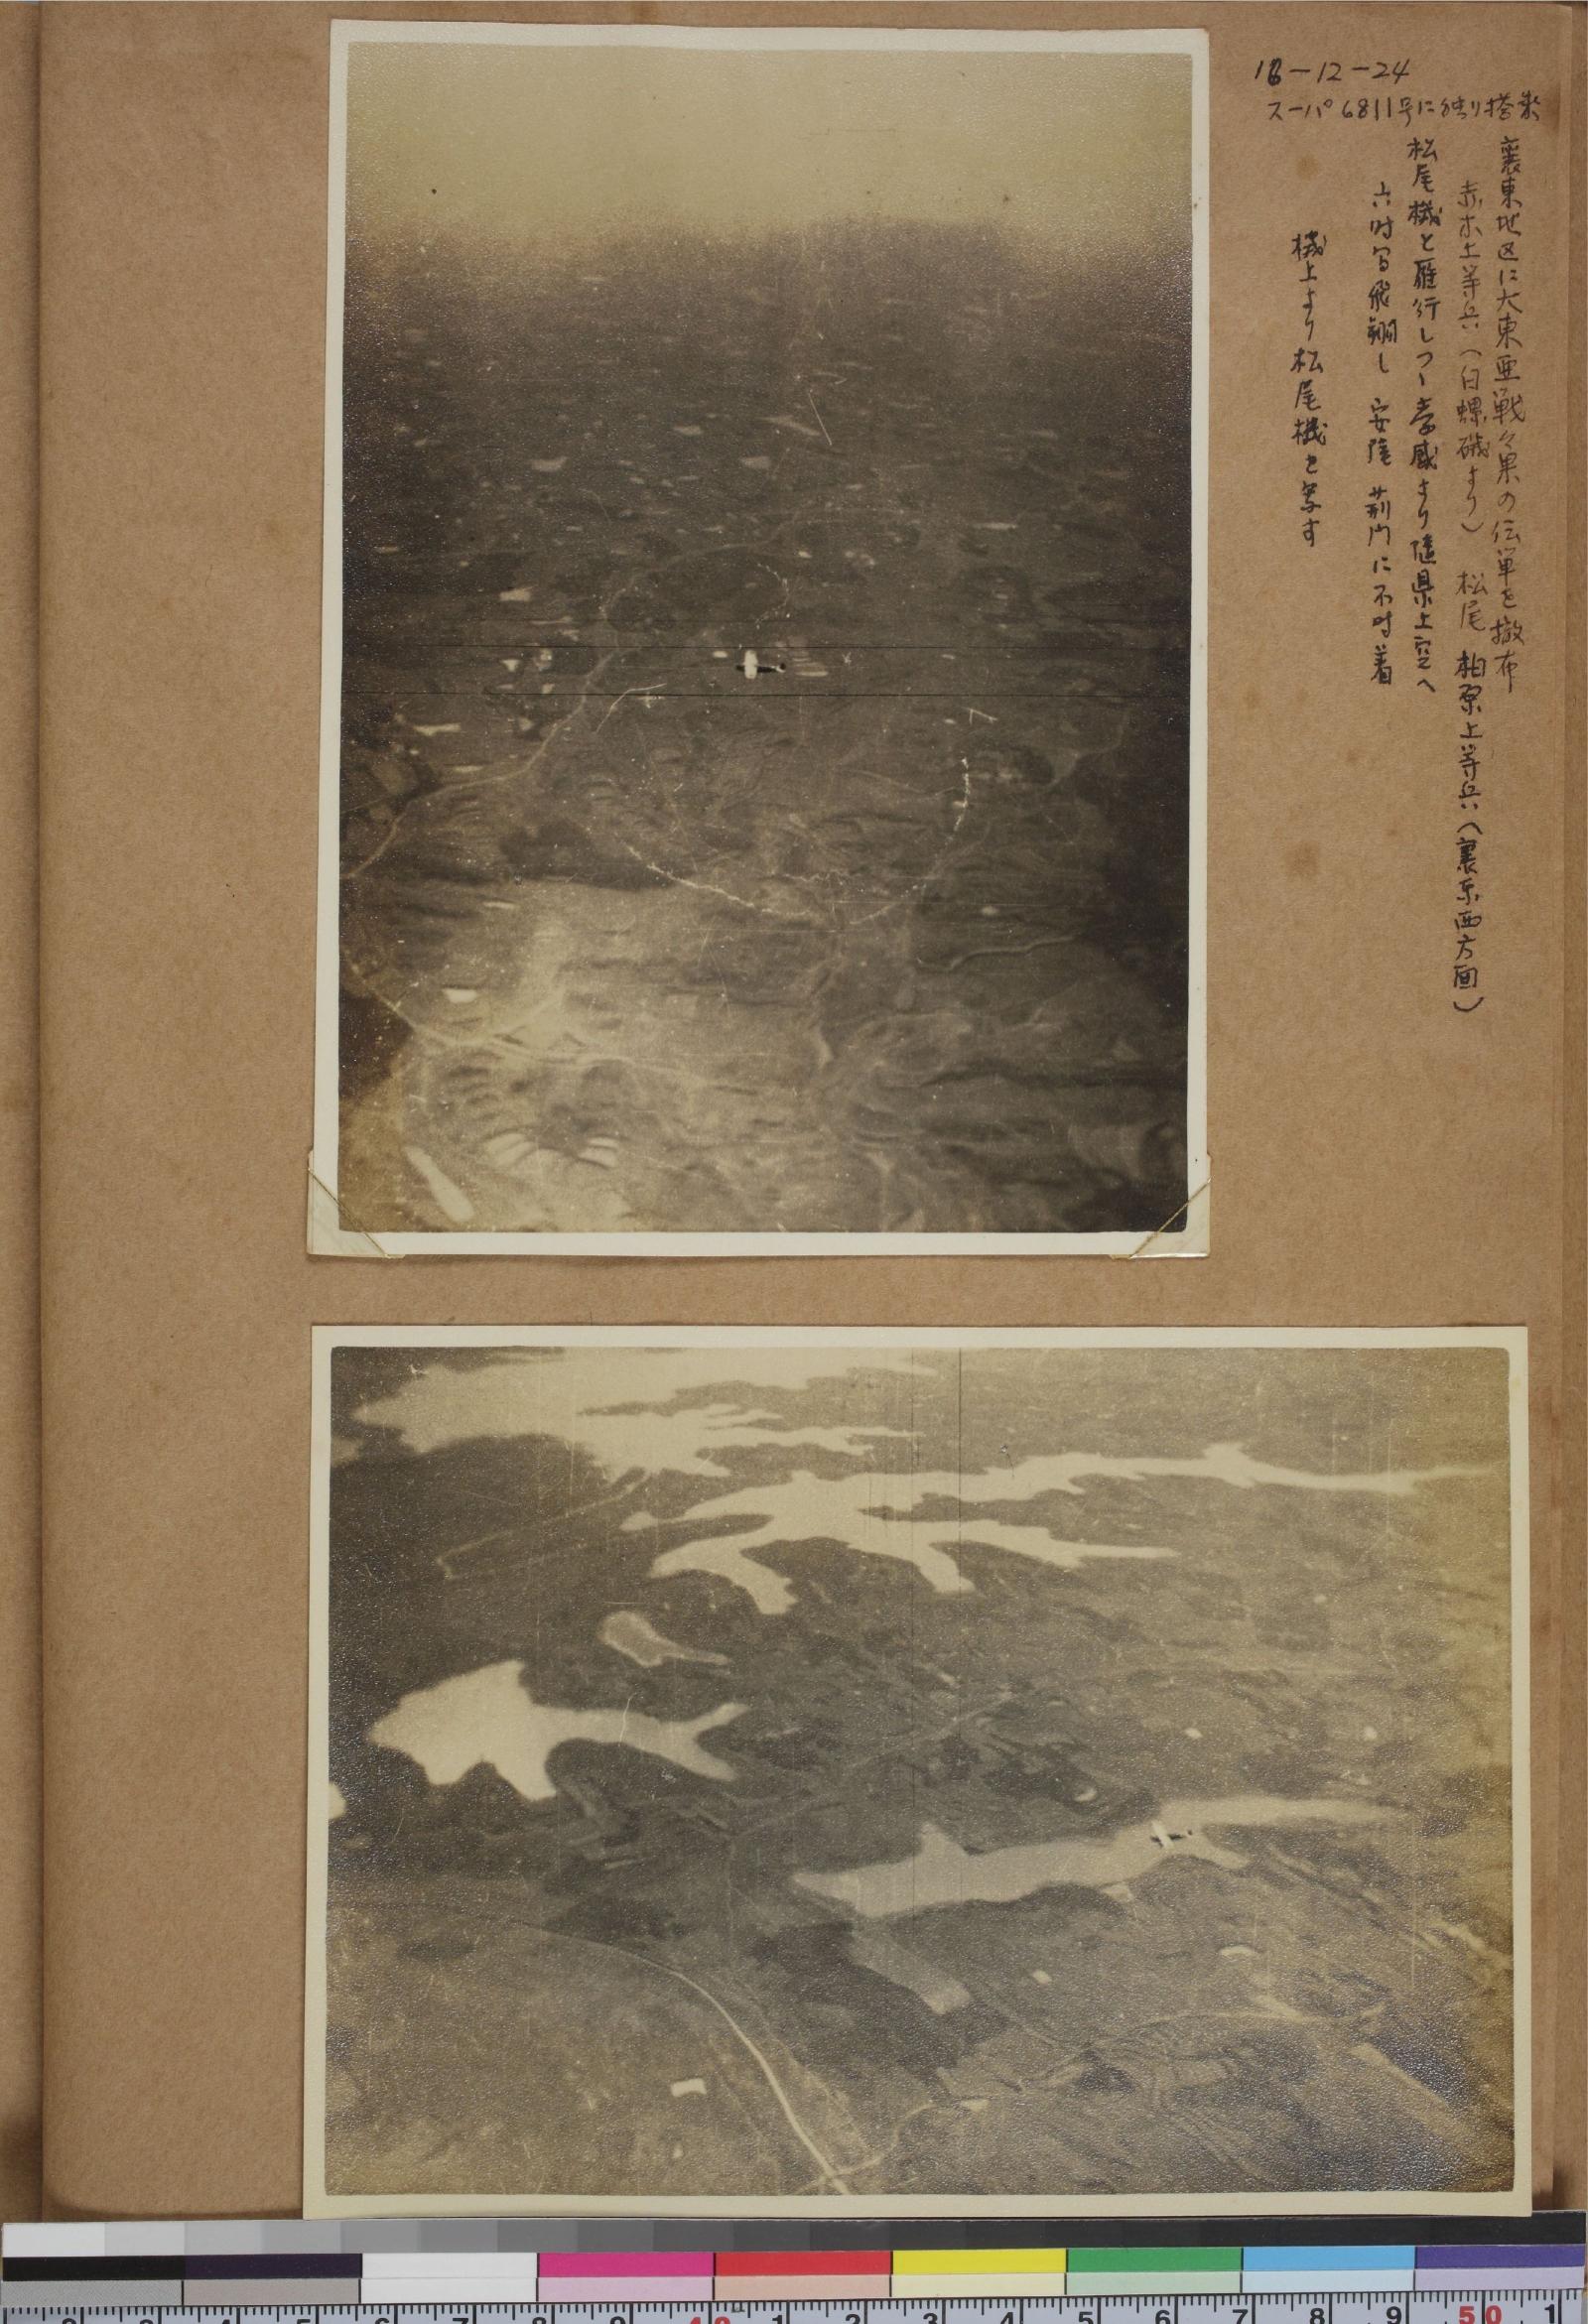 16-12-24
スーパ6811号に独り搭乗
襄東地区に大東亜戦々果の伝単を撒布
赤木上等兵(白螺磯より) 松尾 柏原上等兵(襄東西方面)
松尾機と雁行しつゝ孝感より随県上空へ
六時間飛翔し 安陸 荊門に不時着
機上より松尾機を写す
2 3 4 5 6 7 8 9 40 1 2 3 4 5 6 7 8 9 50 1